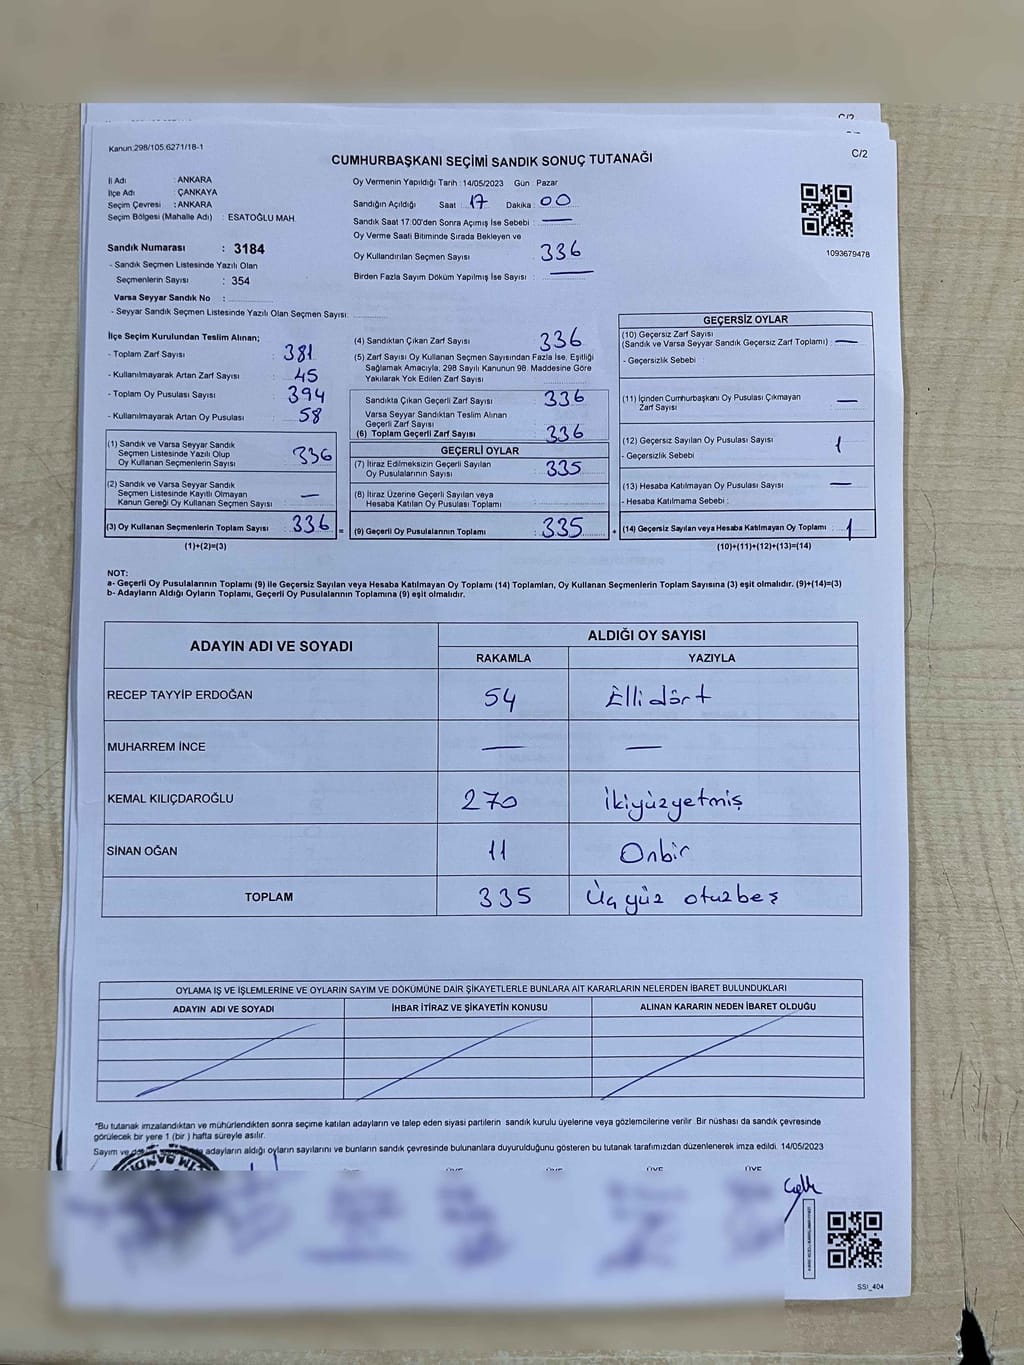 C/2
Kanun:298/105.6271/18-1
CUMHURBAŞKANI SEÇİMİ SANDIK SONUÇ TUTANAĞI
C/2
İl Adı : ANKARA
İlçe Adı : ÇANKAYA
Seçim Çevresi : ANKARA
Seçim Bölgesi (Mahalle Adı) : ESATOĞLU MAH.
Sandık Numarası : 3184
- Sandık Seçmen Listesinde Yazılı Olan
Seçmenlerin Sayısı : 354
Varsa Seyyar Sandık No :
- Seyyar Sandık Seçmen Listesinde Yazılı Olan Seçmen Sayısı:
Oy Vermenin Yapıldığı Tarih : 14/05/2023 Gün : Pazar
Sandığın Açıldığı Saat : 17 Dakika : 00
Sandık Saat 17:00'den Sonra Açımış İse Sebebi : —
Oy Verme Saati Bitiminde Sırada Bekleyen ve
Oy Kullandırılan Seçmen Sayısı : 336
Birden Fazla Sayım Döküm Yapılmış İse Sayısı : —
1093679478
İlçe Seçim Kurulundan Teslim Alınan;
- Toplam Zarf Sayısı : 381
- Kullanılmayarak Artan Zarf Sayısı : 45
- Toplam Oy Pusulası Sayısı : 394
- Kullanılmayarak Artan Oy Pusulası : 58
(1) Sandık ve Varsa Seyyar Sandık
Seçmen Listesinde Yazılı Olup
Oy Kullanan Seçmenlerin Sayısı : 336
(2) Sandık ve Varsa Seyyar Sandık
Seçmen Listesinde Kayıtlı Olmayan
Kanun Gereği Oy Kullanan Seçmen Sayısı : —
(3) Oy Kullanan Seçmenlerin Toplam Sayısı : 336 =
(1)+(2)=(3)
(4) Sandıktan Çıkan Zarf Sayısı : 336
(5) Zarf Sayısı Oy Kullanan Seçmen Sayısından Fazla İse, Eşitliği
Sağlamak Amacıyla; 298 Sayılı Kanunun 98. Maddesine Göre
Yakılarak Yok Edilen Zarf Sayısı :
Sandıkta Çıkan Geçerli Zarf Sayısı : 336
Varsa Seyyar Sandıktan Teslim Alınan
Geçerli Zarf Sayısı :
(6) Toplam Geçerli Zarf Sayısı : 336
GEÇERLİ OYLAR
(7) İtiraz Edilmeksizin Geçerli Sayılan
Oy Pusulalarının Sayısı : 335
(8) İtiraz Üzerine Geçerli Sayılan veya
Hesaba Katılan Oy Pusulası Toplamı :
(9) Geçerli Oy Pusulalarının Toplamı : 335 +
GEÇERSİZ OYLAR
(10) Geçersiz Zarf Sayısı
(Sandık ve Varsa Seyyar Sandık Geçersiz Zarf Toplamı) : —
- Geçersizlik Sebebi :
(11) İçinden Cumhurbaşkanı Oy Pusulası Çıkmayan
Zarf Sayısı : —
(12) Geçersiz Sayılan Oy Pusulası Sayısı : 1
- Geçersizlik Sebebi :
(13) Hesaba Katılmayan Oy Pusulası Sayısı : —
- Hesaba Katılmama Sebebi :
(14) Geçersiz Sayılan veya Hesaba Katılmayan Oy Toplamı : 1
(10)+(11)+(12)+(13)=(14)
NOT:
a- Geçerli Oy Pusulalarının Toplamı (9) ile Geçersiz Sayılan veya Hesaba Katılmayan Oy Toplamı (14) Toplamları, Oy Kullanan Seçmenlerin Toplam Sayısına (3) eşit olmalıdır. (9)+(14)=(3)
b- Adayların Aldığı Oyların Toplamı, Geçerli Oy Pusulalarının Toplamına (9) eşit olmalıdır.
ADAYIN ADI VE SOYADI ALDIĞI OY SAYISI
RAKAMLA YAZIYLA
RECEP TAYYİP ERDOĞAN 54 Ellidört
MUHARREM İNCE — —
KEMAL KILIÇDAROĞLU 270 İkiyüzyetmiş
SİNAN OĞAN 11 Onbir
TOPLAM 335 Üçyüz otuzbeş
OYLAMA İŞ VE İŞLEMLERİNE VE OYLARIN SAYIM VE DÖKÜMÜNE DAİR ŞİKAYETLERLE BUNLARA AİT KARARLARIN NELERDEN İBARET BULUNDUKLARI
ADAYIN ADI VE SOYADI İHBAR İTİRAZ VE ŞİKAYETİN KONUSU ALINAN KARARIN NEDEN İBARET OLDUĞU
*Bu tutanak imzalandıktan ve mühürlendikten sonra seçime katılan adayların ve talep eden siyasi partilerin sandık kurulu üyelerine veya gözlemcilerine verilir. Bir nüshası da sandık çevresinde
görülecek bir yere 1 (bir ) hafta süreyle asılır.
Sayım ve adayların aldığı oyların sayılarını ve bunların sandık çevresinde bulunanlara duyurulduğunu gösteren bu tutanak tarafımızdan düzenlenerek imza edildi. 14/05/2023
ÜYE ÜYE ÜYE ÜYE
SSI_404